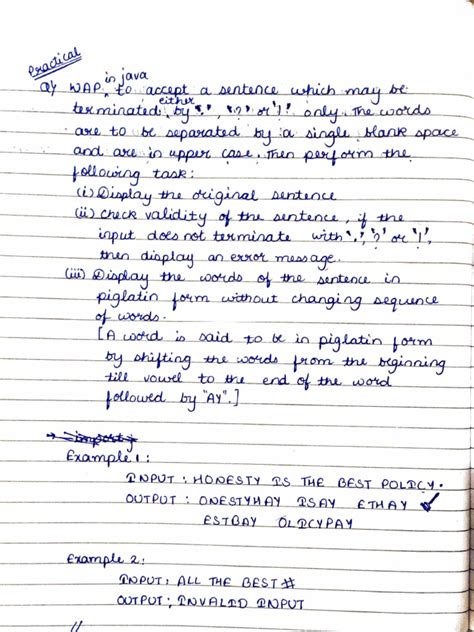 Practical
in java
Q/ WAP to accept a sentence which may be
either
terminated by '.', '?' or '!' only. The words
are to be separated by a single blank space
and are in upper case. Then perform the
following task:
(i) Display the original sentence
(ii) Check validity of the sentence, if the
input does not terminate with '.', '?' or '!',
then display an error message.
(iii) Display the words of the sentence in
piglatin form without changing sequence
of words.
[A word is said to be in piglatin form
by shifting the words from the beginning
till vowel to the end of the word
followed by "AY".]
Example 1:
INPUT: HONESTY IS THE BEST POLICY.
OUTPUT: ONESTYHAY ISAY ETHAY
ESTBAY OLICYPAY
Example 2:
INPUT: ALL THE BEST #
OUTPUT: INVALID INPUT
//